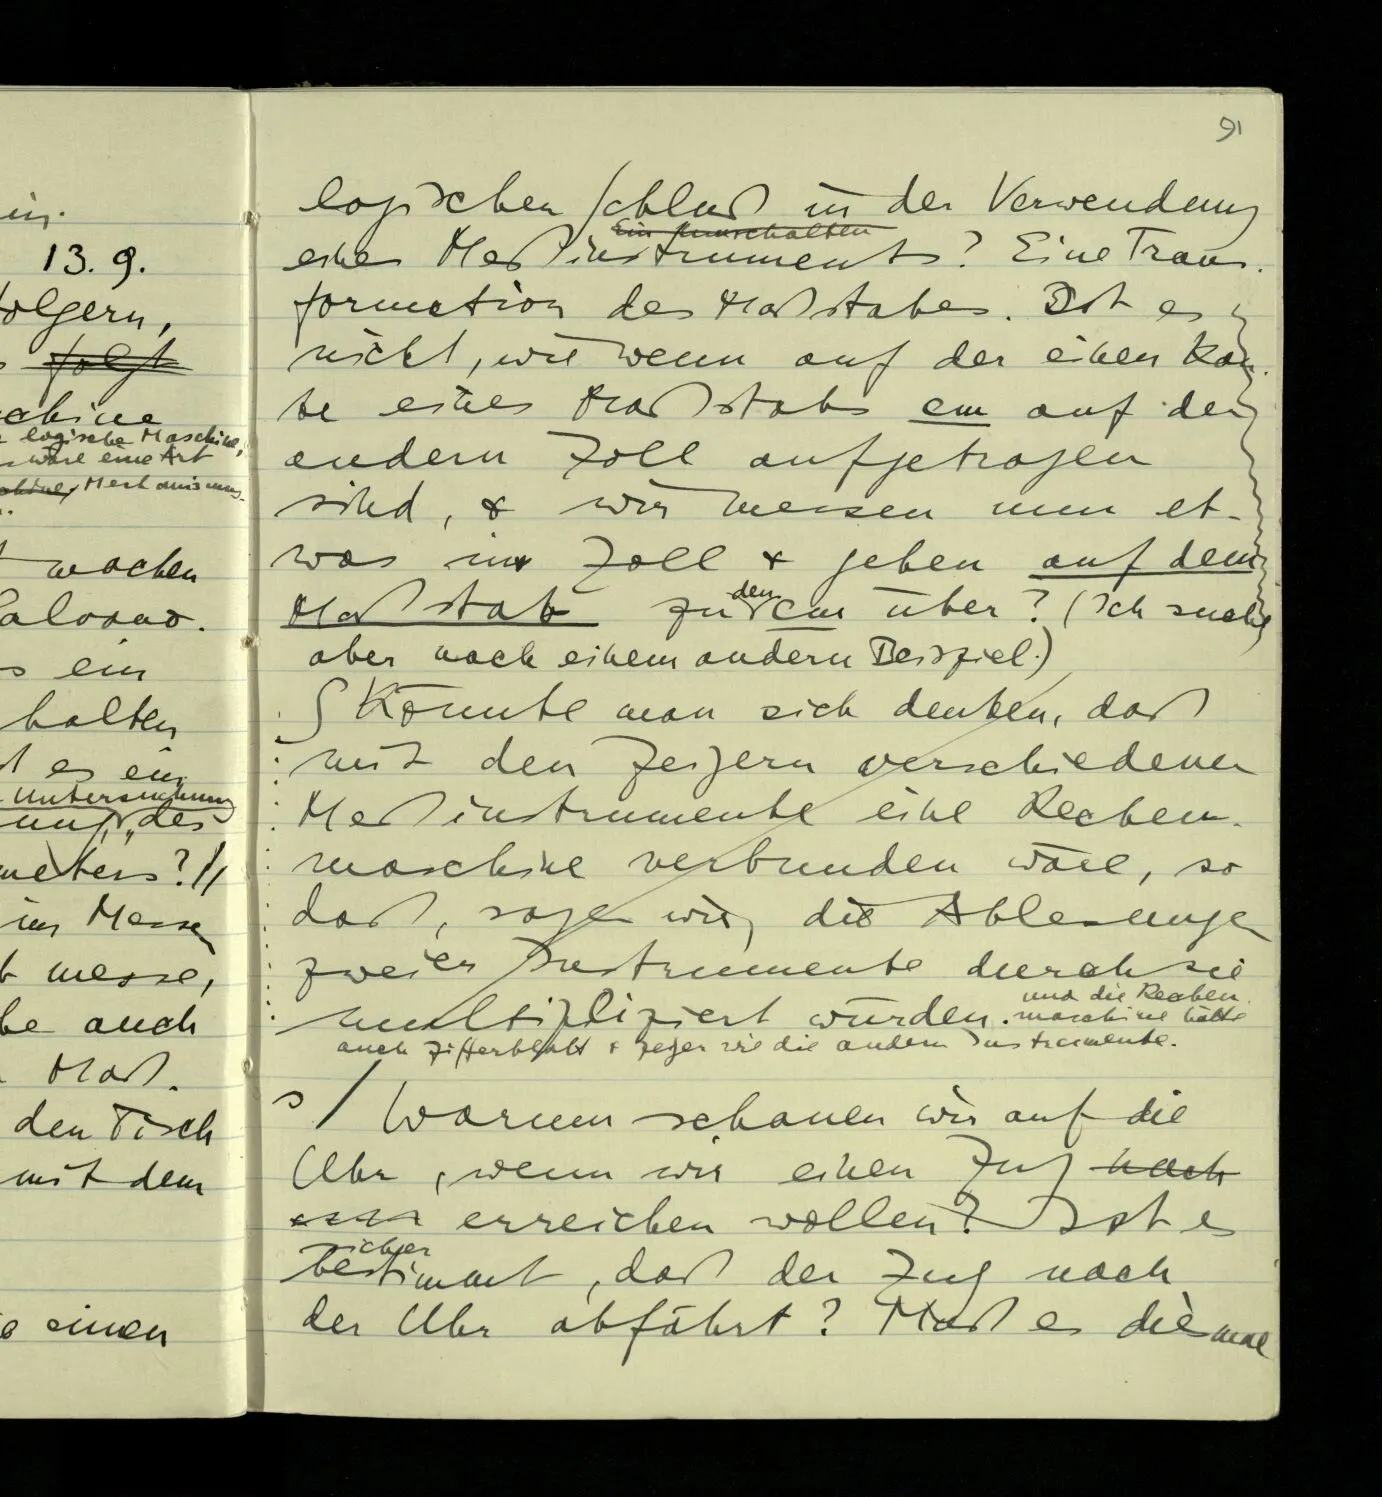 in.
13. 9.
folgern,
folgt
logische Maschine,
wäre eine Art
Mechanismus
machen
ein
halten
es ein
Untersuchung
des
meters? //
im Messen
messe,
auch
Maß.
den Tisch
mit dem
einen
91
logischen Schluß in der Verwendung
Ein Umschalten
eines Meßinstruments? Eine Trans-
formation des Maßstabes. Ist es
nicht, wie wenn auf der einen Kan-
te eines Maßstabs cm auf der
andern Zoll aufgetragen
sind, & wir messen nun et-
was in Zoll & gehen auf dem
Maßstab zu den cm über? (Ich suche
aber nach einem andern Beispiel.)
∫ Könnte man sich denken, daß
mit den Zeigern verschiedener
Meßinstrumente eine Rechen-
maschine verbunden wäre, so
daß, sagen wir, die Ablesungen
zweier Instrumente durch sie
multipliziert würden. und die Rechen-
maschine hätte
auch Zifferblatt & Zeiger wie die andern Instrumente.
s / Warum schauen wir auf die
Uhr, wenn wir einen Zug nach
erreichen wollen? Ist es
sicher
bestimmt, daß der Zug nach
der Uhr abfährt? Muß es diesmal